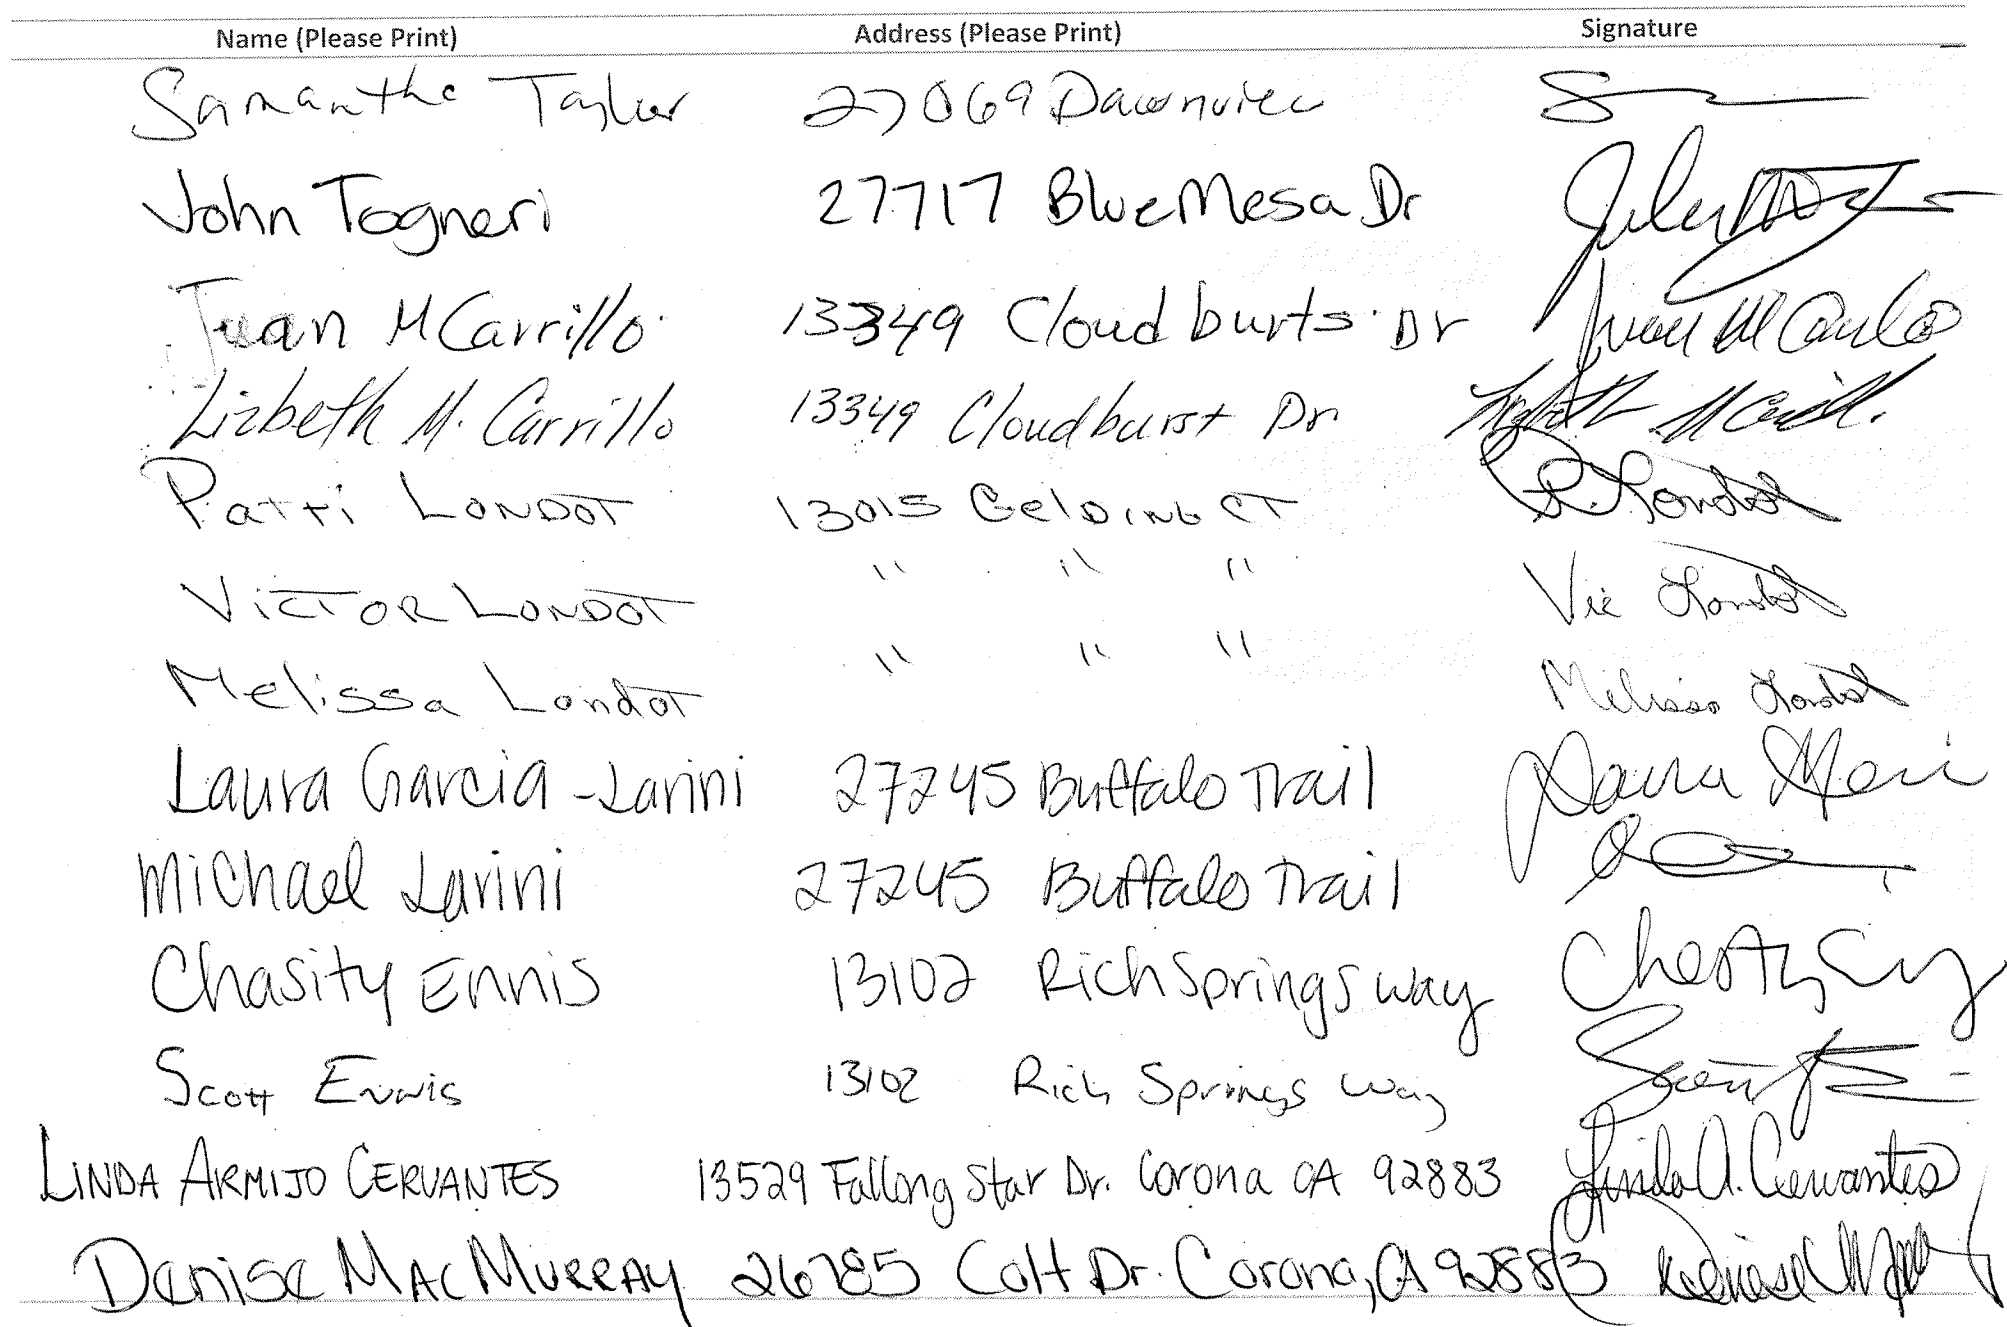 Name (Please Print) Address (Please Print) Signature
Samantha Taylor 27069 Dawnview
John Togneri 27717 Blue Mesa Dr
Juan M Carrillo 13349 Cloud burts Dr Juan M Carrillo
Lizbeth M. Carrillo 13349 Cloudburst Dr Lizbeth M Carrillo
Patti LONDOT 13015 GelDING CT P. Londot
VICTOR LONDOT " " " Vic Londot
Melissa Londot " " " Melissa Londot
Laura Garcia-Larini 27245 Buffalo Trail Laura
Michael Larini 27245 Buffalo Trail
Chasity Ennis 13102 Rich Springs Way
Scott Ennis 13102 Rich Springs Way
LINDA ARMIJO CERVANTES 13529 Falling Star Dr. Corona CA 92883 Linda A. Cervantes
Denise MacMurray 26785 Colt Dr. Corona, CA 92883